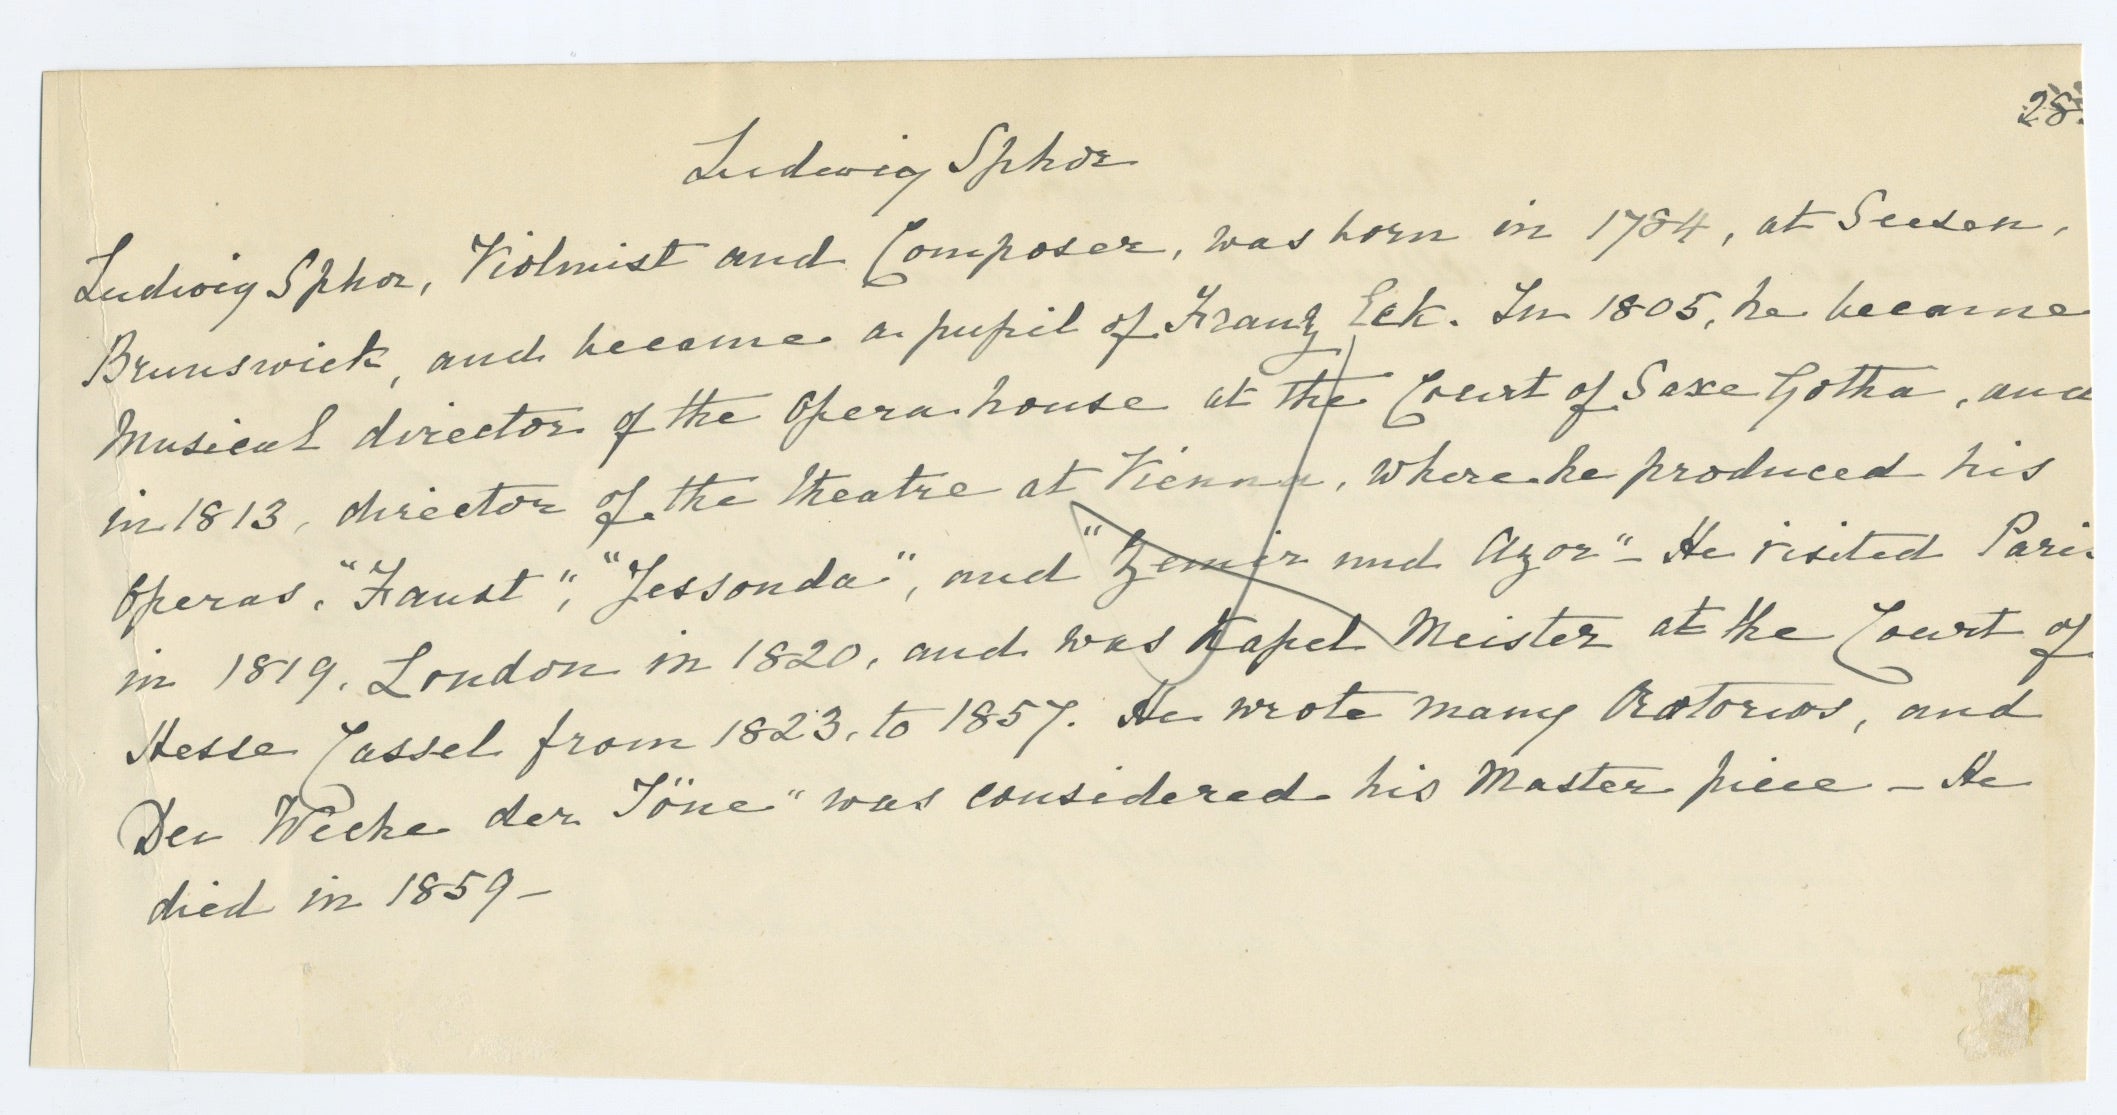 28.
Ludwig Sphor
Ludwig Sphor, Violinist and Composer, was born in 1784, at Seesen,
Brunswick, and became a pupil of Franz Eck. In 1805, he became
Musical director of the Opera house at the Court of Saxe Gotha, and
in 1813, director of the theatre at Vienna, where he produced his
Operas, "Faust", "Jessonda", and "Zemir und Azor" - He visited Pari
in 1819, London in 1820, and was Kapel Meister at the Court of
Hesse Cassel from 1823, to 1857. He wrote many Oratorios, and
Der Weihe der Töne" was considered his Master piece - He
died in 1859 -